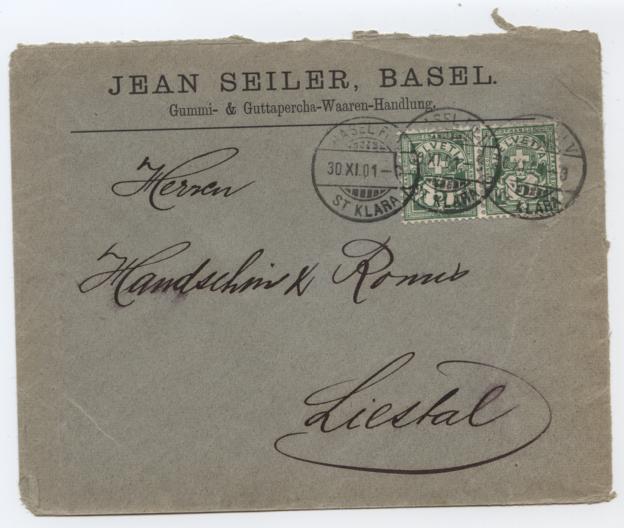 JEAN SEILER, BASEL.
Gummi- & Guttapercha-Waaren-Handlung.
BASEL
30 XI.01
ST KLARA
HELVETIA
KLARA
HELVETIA
KLARA
Herren
Handschin & Ronus
Liestal